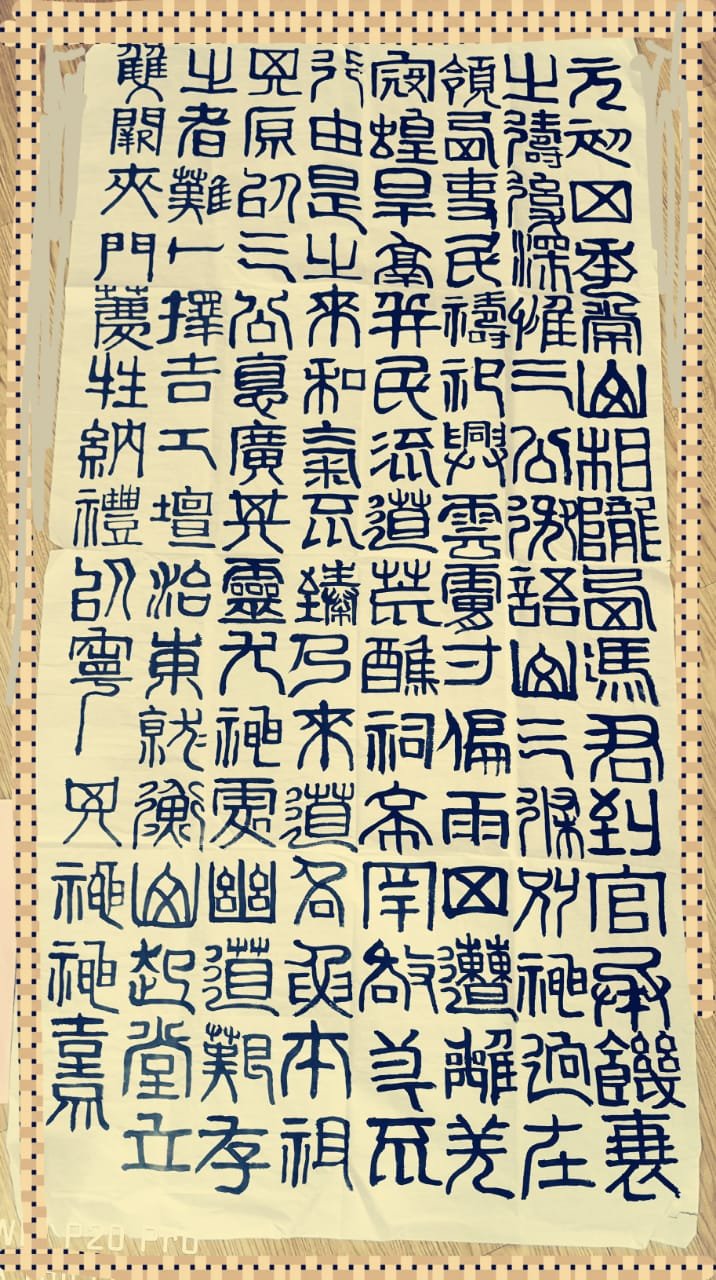 元初四年常山相隴西馮君到官承饑衰
之禱後深惟三公御語山三條別神迥在
領西吏民禱祀興雲膚寸偏雨四遭離羌
寇蝗旱鬲并民流道荒醮祠希罕敬奠不
行由是之來和氣不臻乃來道各本祖
其原以三公惪廣其靈尤神處幽道艱存
之者難卜擇吉工壇治東就衡山起堂立
雙闕夾門薦牲納禮以寧其神神熹